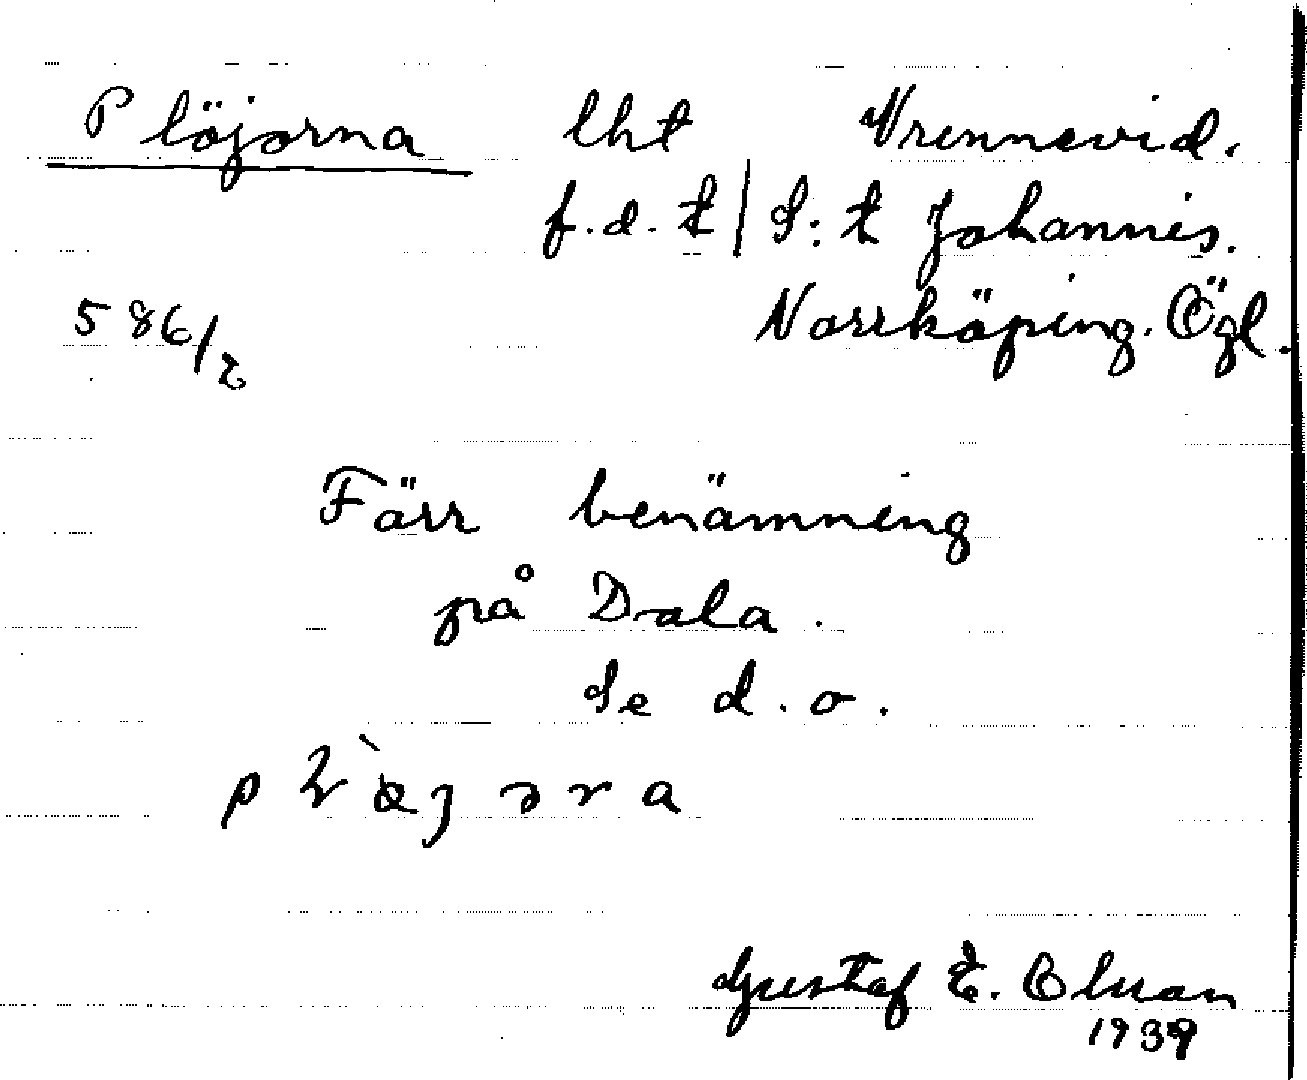 Plöjorna lht Vrennevid.
f.d.t/S:t Johannis.
586/2 Norrköping. Ögl.
Färr benämning
på Dala.
Se d.o.
Gustaf E. Olman
1939